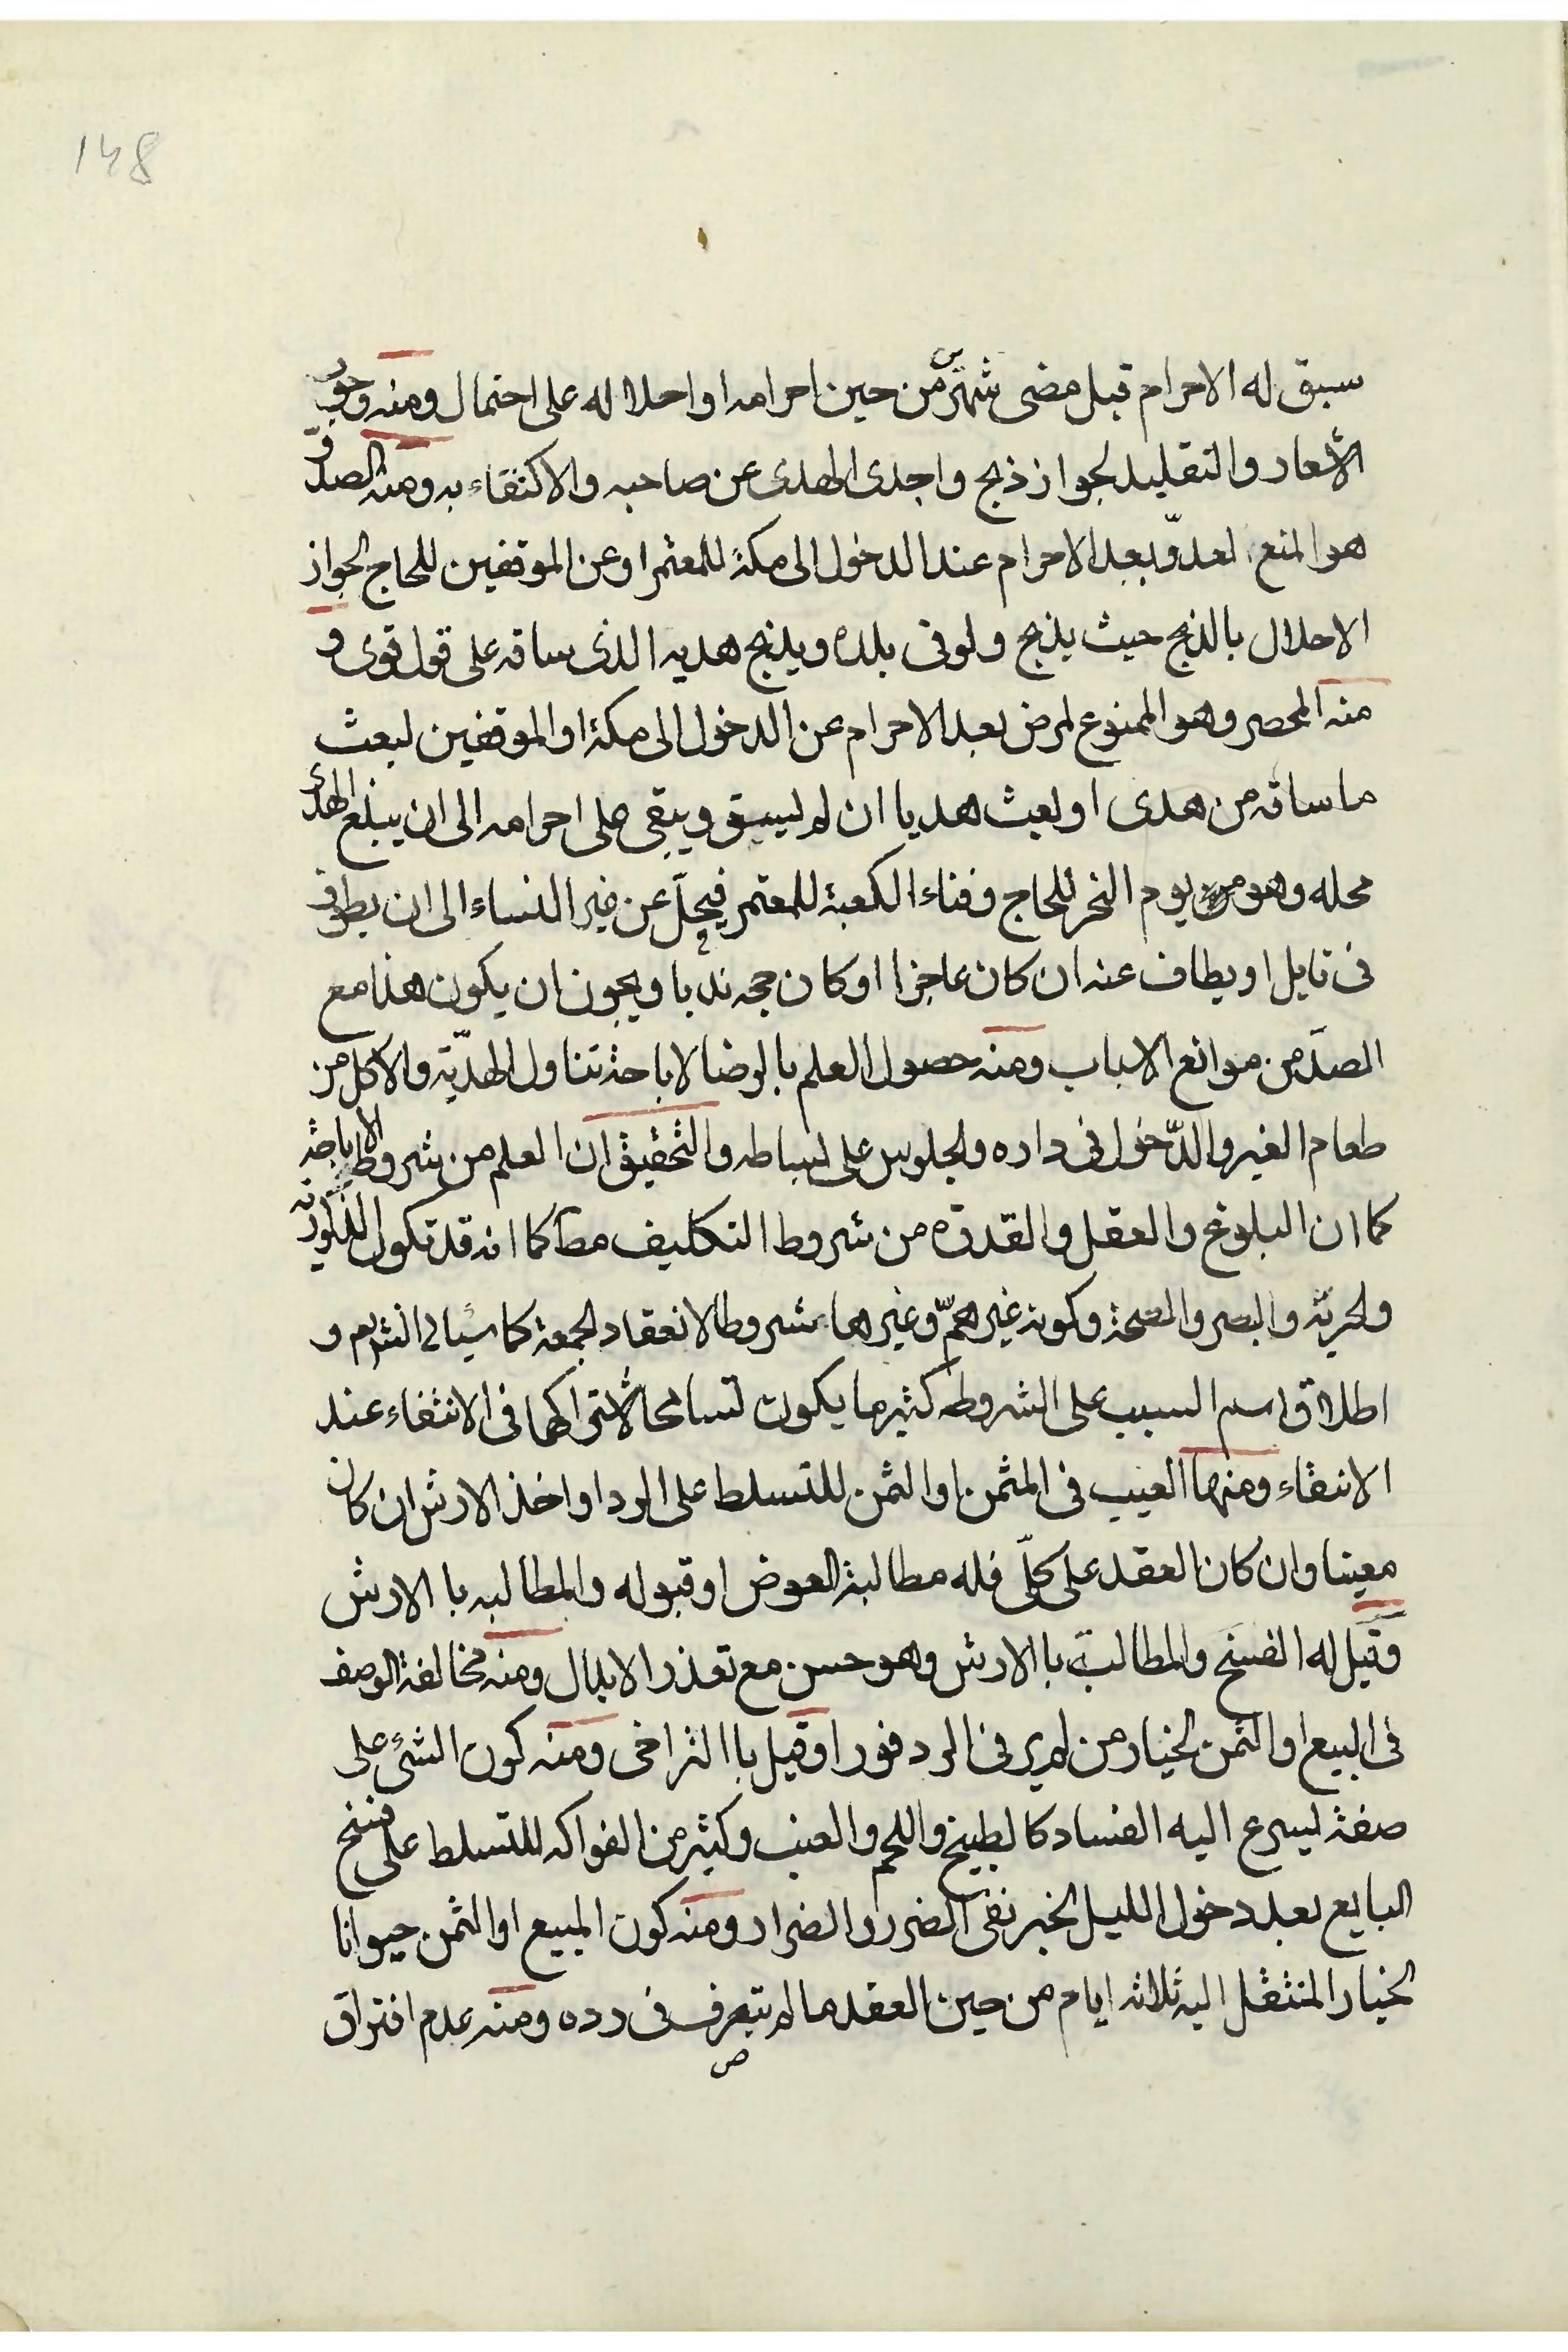 148
سبق له الاحرام قبل مضى شهر من حين احرامه او احلاله على احتمال ومنه وجوب
الاشعار والتقليد لجواز ذبح واجدى الهدى عن صاحبه والاكتفاء به ومنه الصد و
هو المنع لعدوّ بعد الاحرام عند الدخول الى مكة للمعتمر او عن الموقفين للحاج لجواز
الاحلال بالذبح حيث يذبح ولو فى بلده ويذبح هديه الذى ساقه على قول قوى و
منه المحصر وهو الممنوع لمرض بعد الاحرام عن الدخول الى مكة او الموقفين لبعث
ما ساقه من هدى او بعث هديا ان لم يسق ويبقى على احرامه الى ان يبلغ الهدى
محله وهو يوم النحر للحاج وفناء الكعبة للمعتمر فيحلّ عن غير النساء الى ان يطوف
فى قابل او يطاف عنه ان كان عاجزا او كان حجه ندبا ويجوز ان يكون هذا مع
الصدّ من موانع الاسباب ومنه حصول العلم بالرضا لاباحة تناول الهديّة والاكل من
طعام الغير والدّخول فى داره والجلوس على بساطه والتحقيق ان العلم من شروط الاباحة
كما ان البلوغ والعقل والقدرة من شروط التكليف مط كما انه قد تكون الذكورة
والحرية والبصر والصحة وكونه غير همّ وغيرها شروطا لانعقاد الجمعة كما سيأتى انش تع و
اطلاق اسم السبب على الشروط كثيرما يكون تسامحا لاشتراكهما فى الانتفاء عند
الانتفاء ومنها العيب فى المثمن او الثمن للتسلط على الرد او اخذ الارش ان كان
معينا وان كان العقد على كلّى فله مطالبة العوض او قبوله والمطالبه با الارش
وقيل له الفسخ والمطالبة با الارش وهو حسن مع تعذر الابدال ومنه مخالفة الوصف
فى البيع او الثمن لخيار من لم ير فى الرد فورا وقيل با التراخى ومنه كون الشئ على
صفة يسرع اليه الفساد كالطبيخ واللحم والعنب وكثير من الفواكه للتسلط على فسخ
البايع بعد دخول الليل لخبر نفى الضرر والضرار ومنه كون المبيع او الثمن حيوانا
لخيار المنتقل اليه ثلاثه ايام من حين العقد ما لم يتصرف فى رده ومنه عدم افتراق
ص